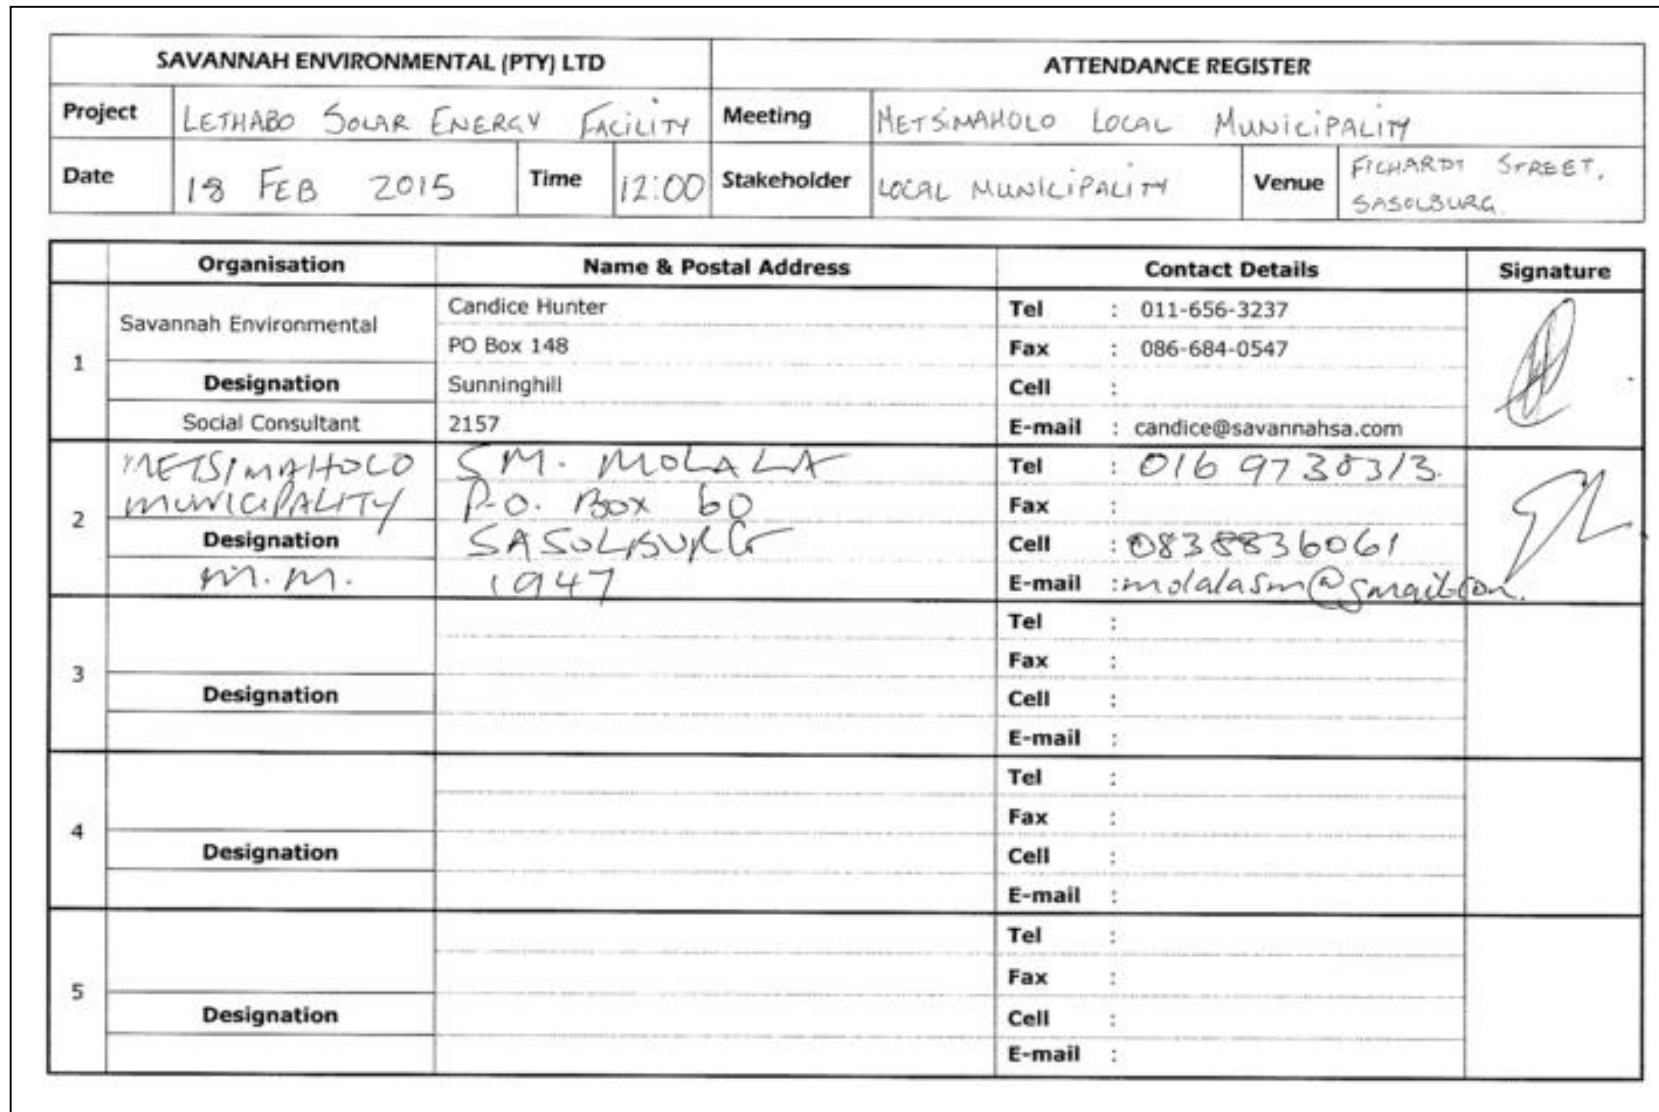 SAVANNAH ENVIRONMENTAL (PTY) LTD ATTENDANCE REGISTER
Project LETHABO SOLAR ENERGY FACILITY Meeting METSIMAHOLO LOCAL MUNICIPALITY
Date 18 FEB 2015 Time 12:00 Stakeholder LOCAL MUNICIPALITY Venue FICHARDT STREET, SASOLBURG.
Organisation Name & Postal Address Contact Details Signature
1 Savannah Environmental Candice Hunter Tel : 011-656-3237
PO Box 148 Fax : 086-684-0547
Designation Sunninghill Cell :
Social Consultant 2157 E-mail : candice@savannahsa.com
2 METSIMAHOLO S.M. MOLALA Tel : 016 9738313
MUNICIPALITY P.O. Box 60 Fax :
Designation SASOLBURG Cell : 0838836061
M.M. 1947 E-mail : molalasm@gmail.com.
Tel :
Fax :
3 Designation Cell :
E-mail :
Tel :
Fax :
4 Designation Cell :
E-mail :
Tel :
Fax :
5 Designation Cell :
E-mail :